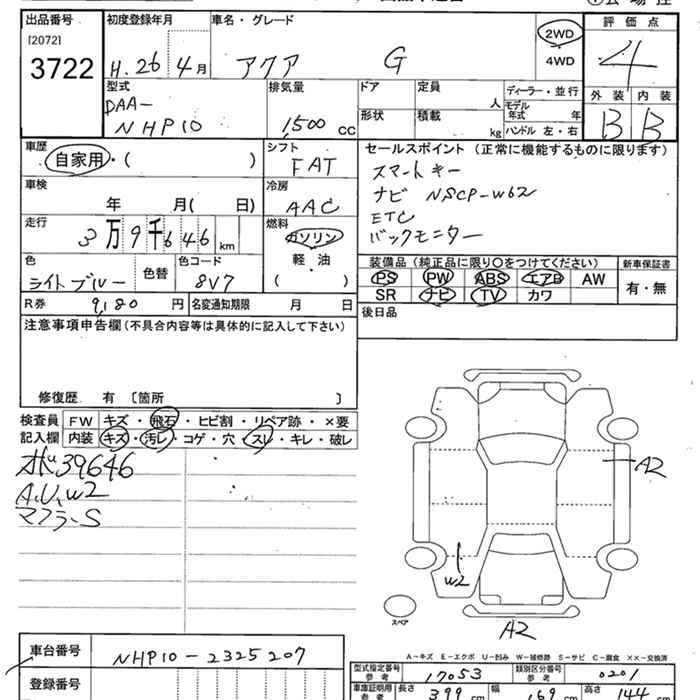 出品番号 初度登録年月 車名・グレード 2WD 評価点
[2072]
3722 H.26 4月 アクア G 4WD 4
型式 排気量 ドア 定員 人 ディーラー・並行 外装 内装
DAA-
NHP10 1,500 CC 形状 積載 kg モデル年式 年 B B
ハンドル 左・右
車歴 シフト セールスポイント(正常に機能するものに限ります)
自家用・( ) FAT スマートキー
車検 冷房 ナビ NSCP-W62
年 月( 日) AAC ETC
走行 燃料 バックモニター
3万9千646km ガソリン
軽・油
( )
装備品(純正品に限り○をつけてください) 新車保証書
色 色替 色コード PS PW ABS エアB AW 有・無
ライトブルー 8V7 SR ナビ TV カワ
R券 9,180円 名変通知期限 月 日 後日品
注意事項申告欄(不具合内容等は具体的に記入して下さい)
修復歴 有 [箇所 ]
検査員 FW キズ・飛石・ヒビ割・リペア跡・×要
記入欄 内装 キズ・汚レ・コゲ・穴・スレ・キレ・破レ
ボ39646
A,U,W2
マフラーS
A2
W2
スペア
A2
A-キズ E-エクボ U-凹み W-補修跡 S-サビ C-腐食 ××-交換済
車台番号 NHP10-2325207
型式指定番号 参考 17053 類別区分番号 参考 0201
登録番号 車庫証明用 参考 長さ 399 cm 幅 169 cm 高さ 144 cm